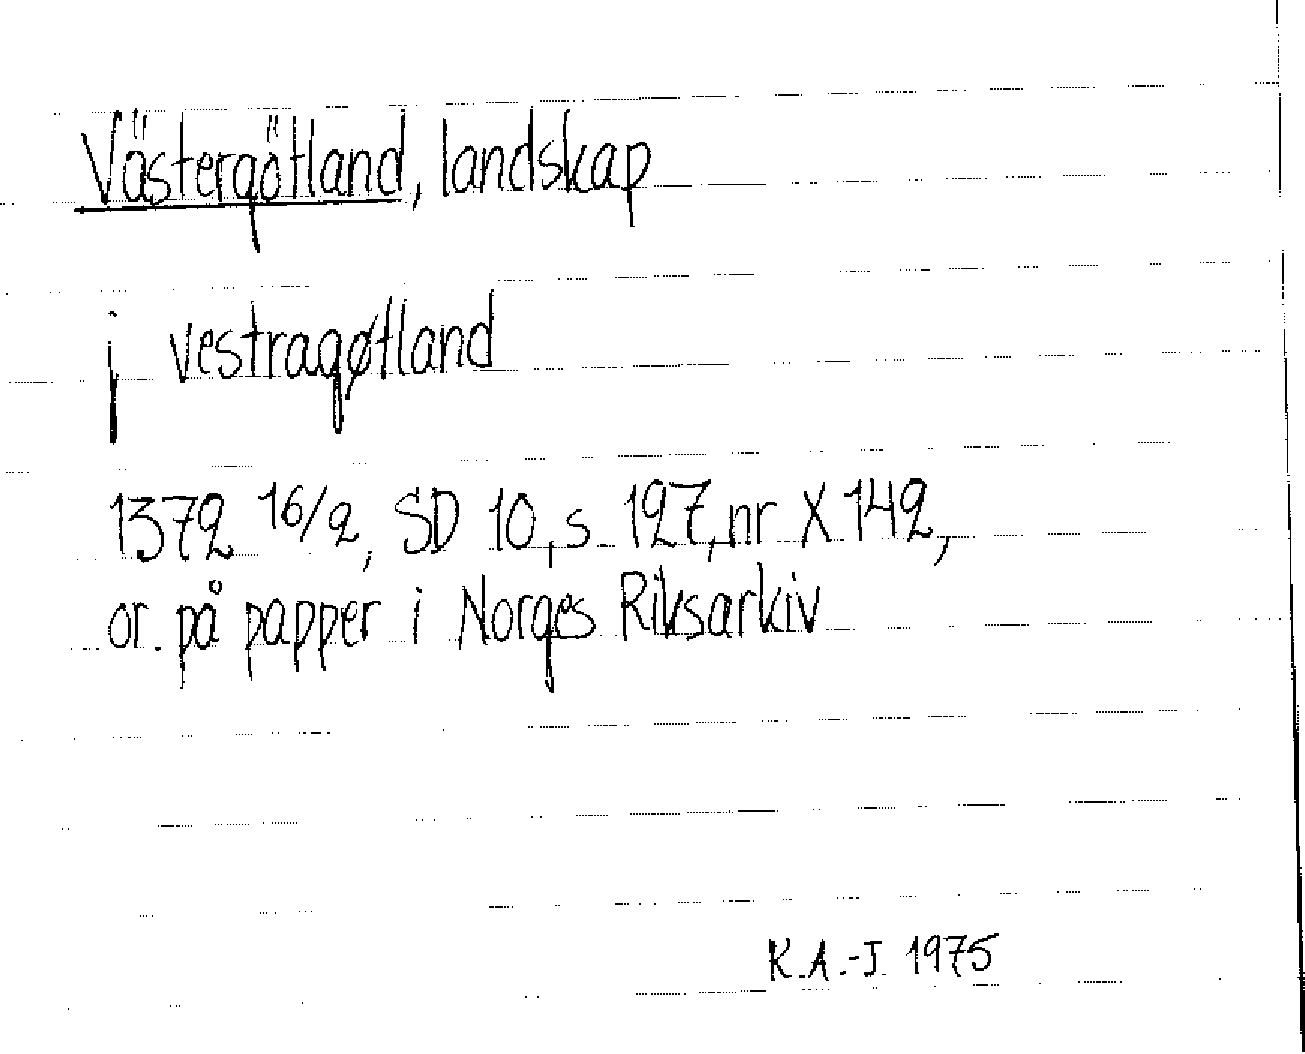 Västergötland, landskap
j vestragøtland
1372 16/2, SD 10, s. 127, nr X 142,
or. på papper i Norges Riksarkiv
K.A.-J 1975